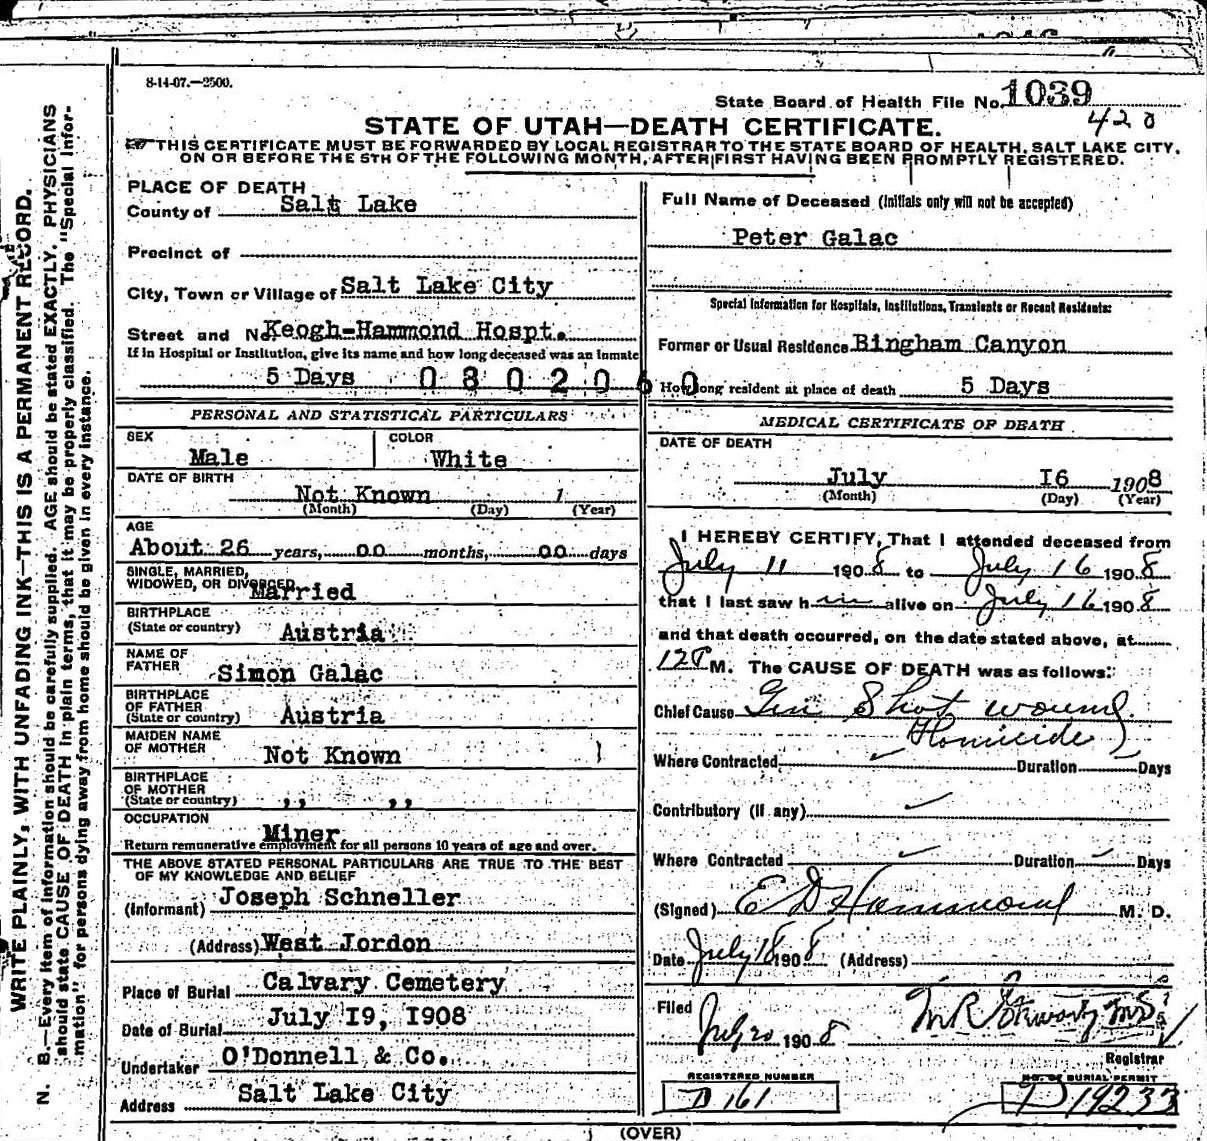 8-14-07.—2500.
State Board of Health File No. 1039
420
STATE OF UTAH—DEATH CERTIFICATE.
THIS CERTIFICATE MUST BE FORWARDED BY LOCAL REGISTRAR TO THE STATE BOARD OF HEALTH, SALT LAKE CITY,
ON OR BEFORE THE 5TH OF THE FOLLOWING MONTH, AFTER FIRST HAVING BEEN PROMPTLY REGISTERED.
WRITE PLAINLY, WITH UNFADING INK—THIS IS A PERMANENT RECORD.
N. B.—Every item of information should be carefully supplied. AGE should be stated EXACTLY. PHYSICIANS
should state CAUSE OF DEATH in plain terms, that it may be properly classified. The "Special Infor-
mation" for persons dying away from home should be given in every instance.
PLACE OF DEATH
County of Salt Lake
Precinct of
City, Town or Village of Salt Lake City
Street and No. Keogh-Hammond Hospt.
If in Hospital or Institution, give its name and how long deceased was an inmate
5 Days 0802060
PERSONAL AND STATISTICAL PARTICULARS
SEX COLOR
Male White
DATE OF BIRTH
Not Known 1
(Month) (Day) (Year)
AGE
About 26 years, 00 months, 00 days
SINGLE, MARRIED,
WIDOWED, OR DIVORCED
Married
BIRTHPLACE
(State or country) Austria
NAME OF
FATHER Simon Galac
BIRTHPLACE
OF FATHER
(State or country) Austria
MAIDEN NAME
OF MOTHER Not Known
BIRTHPLACE
OF MOTHER
(State or country) ,, ,,
OCCUPATION
Miner
Return remunerative employment for all persons 10 years of age and over.
THE ABOVE STATED PERSONAL PARTICULARS ARE TRUE TO THE BEST
OF MY KNOWLEDGE AND BELIEF
(Informant) Joseph Schneller
(Address) West Jordon
Place of Burial Calvary Cemetery
Date of Burial July I9, I908
Undertaker O'Donnell & Co.
Address Salt Lake City
Full Name of Deceased (Initials only will not be accepted)
Peter Galac
Special Information for Hospitals, Institutions, Transients or Recent Residents:
Former or Usual Residence Bingham Canyon
How long resident at place of death 5 Days
MEDICAL CERTIFICATE OF DEATH
DATE OF DEATH
July I6 1908
(Month) (Day) (Year)
I HEREBY CERTIFY, That I attended deceased from
July 11 1908 to July 16 1908
that I last saw h im alive on July 16 1908
and that death occurred, on the date stated above, at
12 P M. The CAUSE OF DEATH was as follows:
Chief Cause Gun Shot wound
Homicide
Where Contracted Duration Days
Contributory (if any)
Where Contracted Duration Days
(Signed) E D Hammond M. D.
Date July 18 1908 (Address)
Filed
July 20 1908
Registrar
REGISTERED NUMBER
D 161
NO. OF BURIAL PERMIT
19233
(OVER)